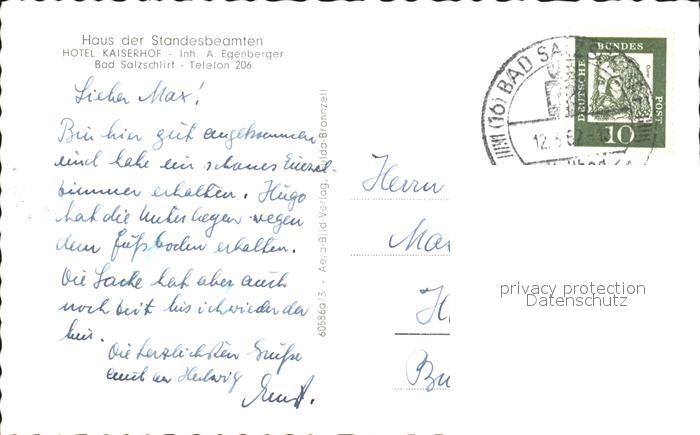 Haus der Standesbeamten
HOTEL KAISERHOF - Inh. A. Egenberger
Bad Salzschlirf - Telefon 206
Lieber Max!
Bin hier gut angekommen
und habe ein schönes Einzel-
zimmer erhalten. Hugo
hat die Unterlagen wegen
dem Fußboden erhalten.
Die Sache hat aber auch
noch Zeit bis ich wieder da
bin.
Die herzlichsten Grüße
auch an Hedwig
Ernst.
60586a/3 - Aero-Bild-Verlag, Fulda-Bronnzell
(16) BAD SALZ
12.
DEUTSCHE BUNDES POST
10
Herrn
Max
privacy protection
Datenschutz